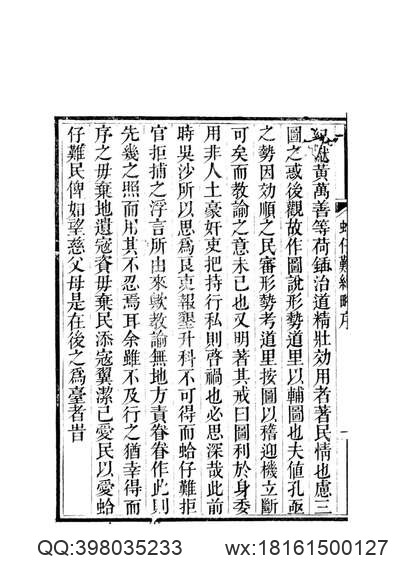 黃萬善等荷鍤治道精壯効用者著民情也慮三
圖之或後觀故作圖說形勢道里以輔圖也夫値孔亟
之勢因効順之民審形勢考道里按圖以稽迎機立斷
可矣而教諭之意未已也又明著其戒曰圖利於身委
用非人土豪奸吏把持行私則啓禍也必思深哉此前
時吳沙所以思爲良吏報墾升科不可得而蛤仔難拒
官拒捕之浮言所由來歟教諭無地方責眷眷作此則
先幾之照而用其不忍焉耳余雖不及行之猶幸得而
序之毋棄地遺寇資毋棄民添寇翼潔己愛民以愛蛤
仔難民俾如望慈父母是在後之爲臺者昔
QQ:398035233
wx:18161500127